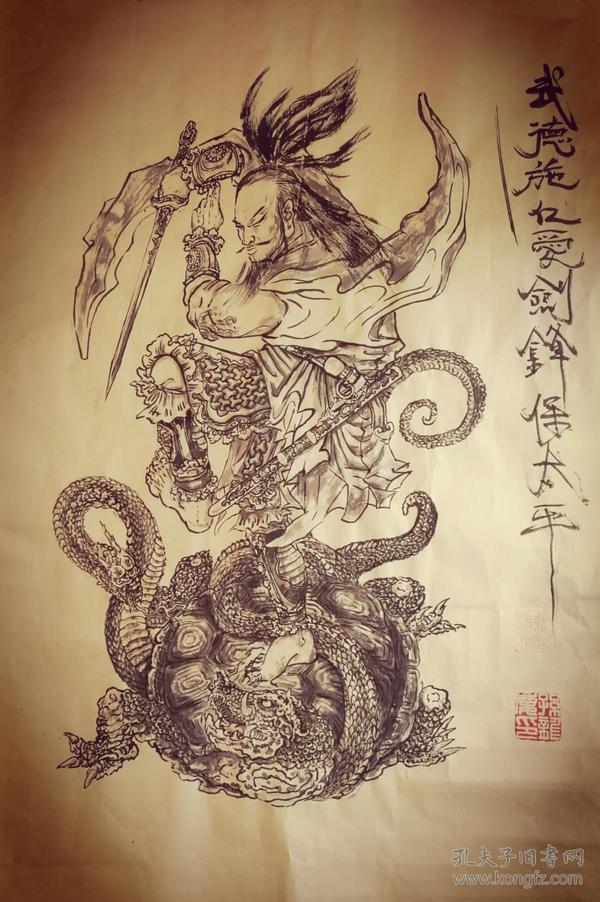 武德施仁愛劍鋒保太平
孔夫子旧书网
www.kongfz.com